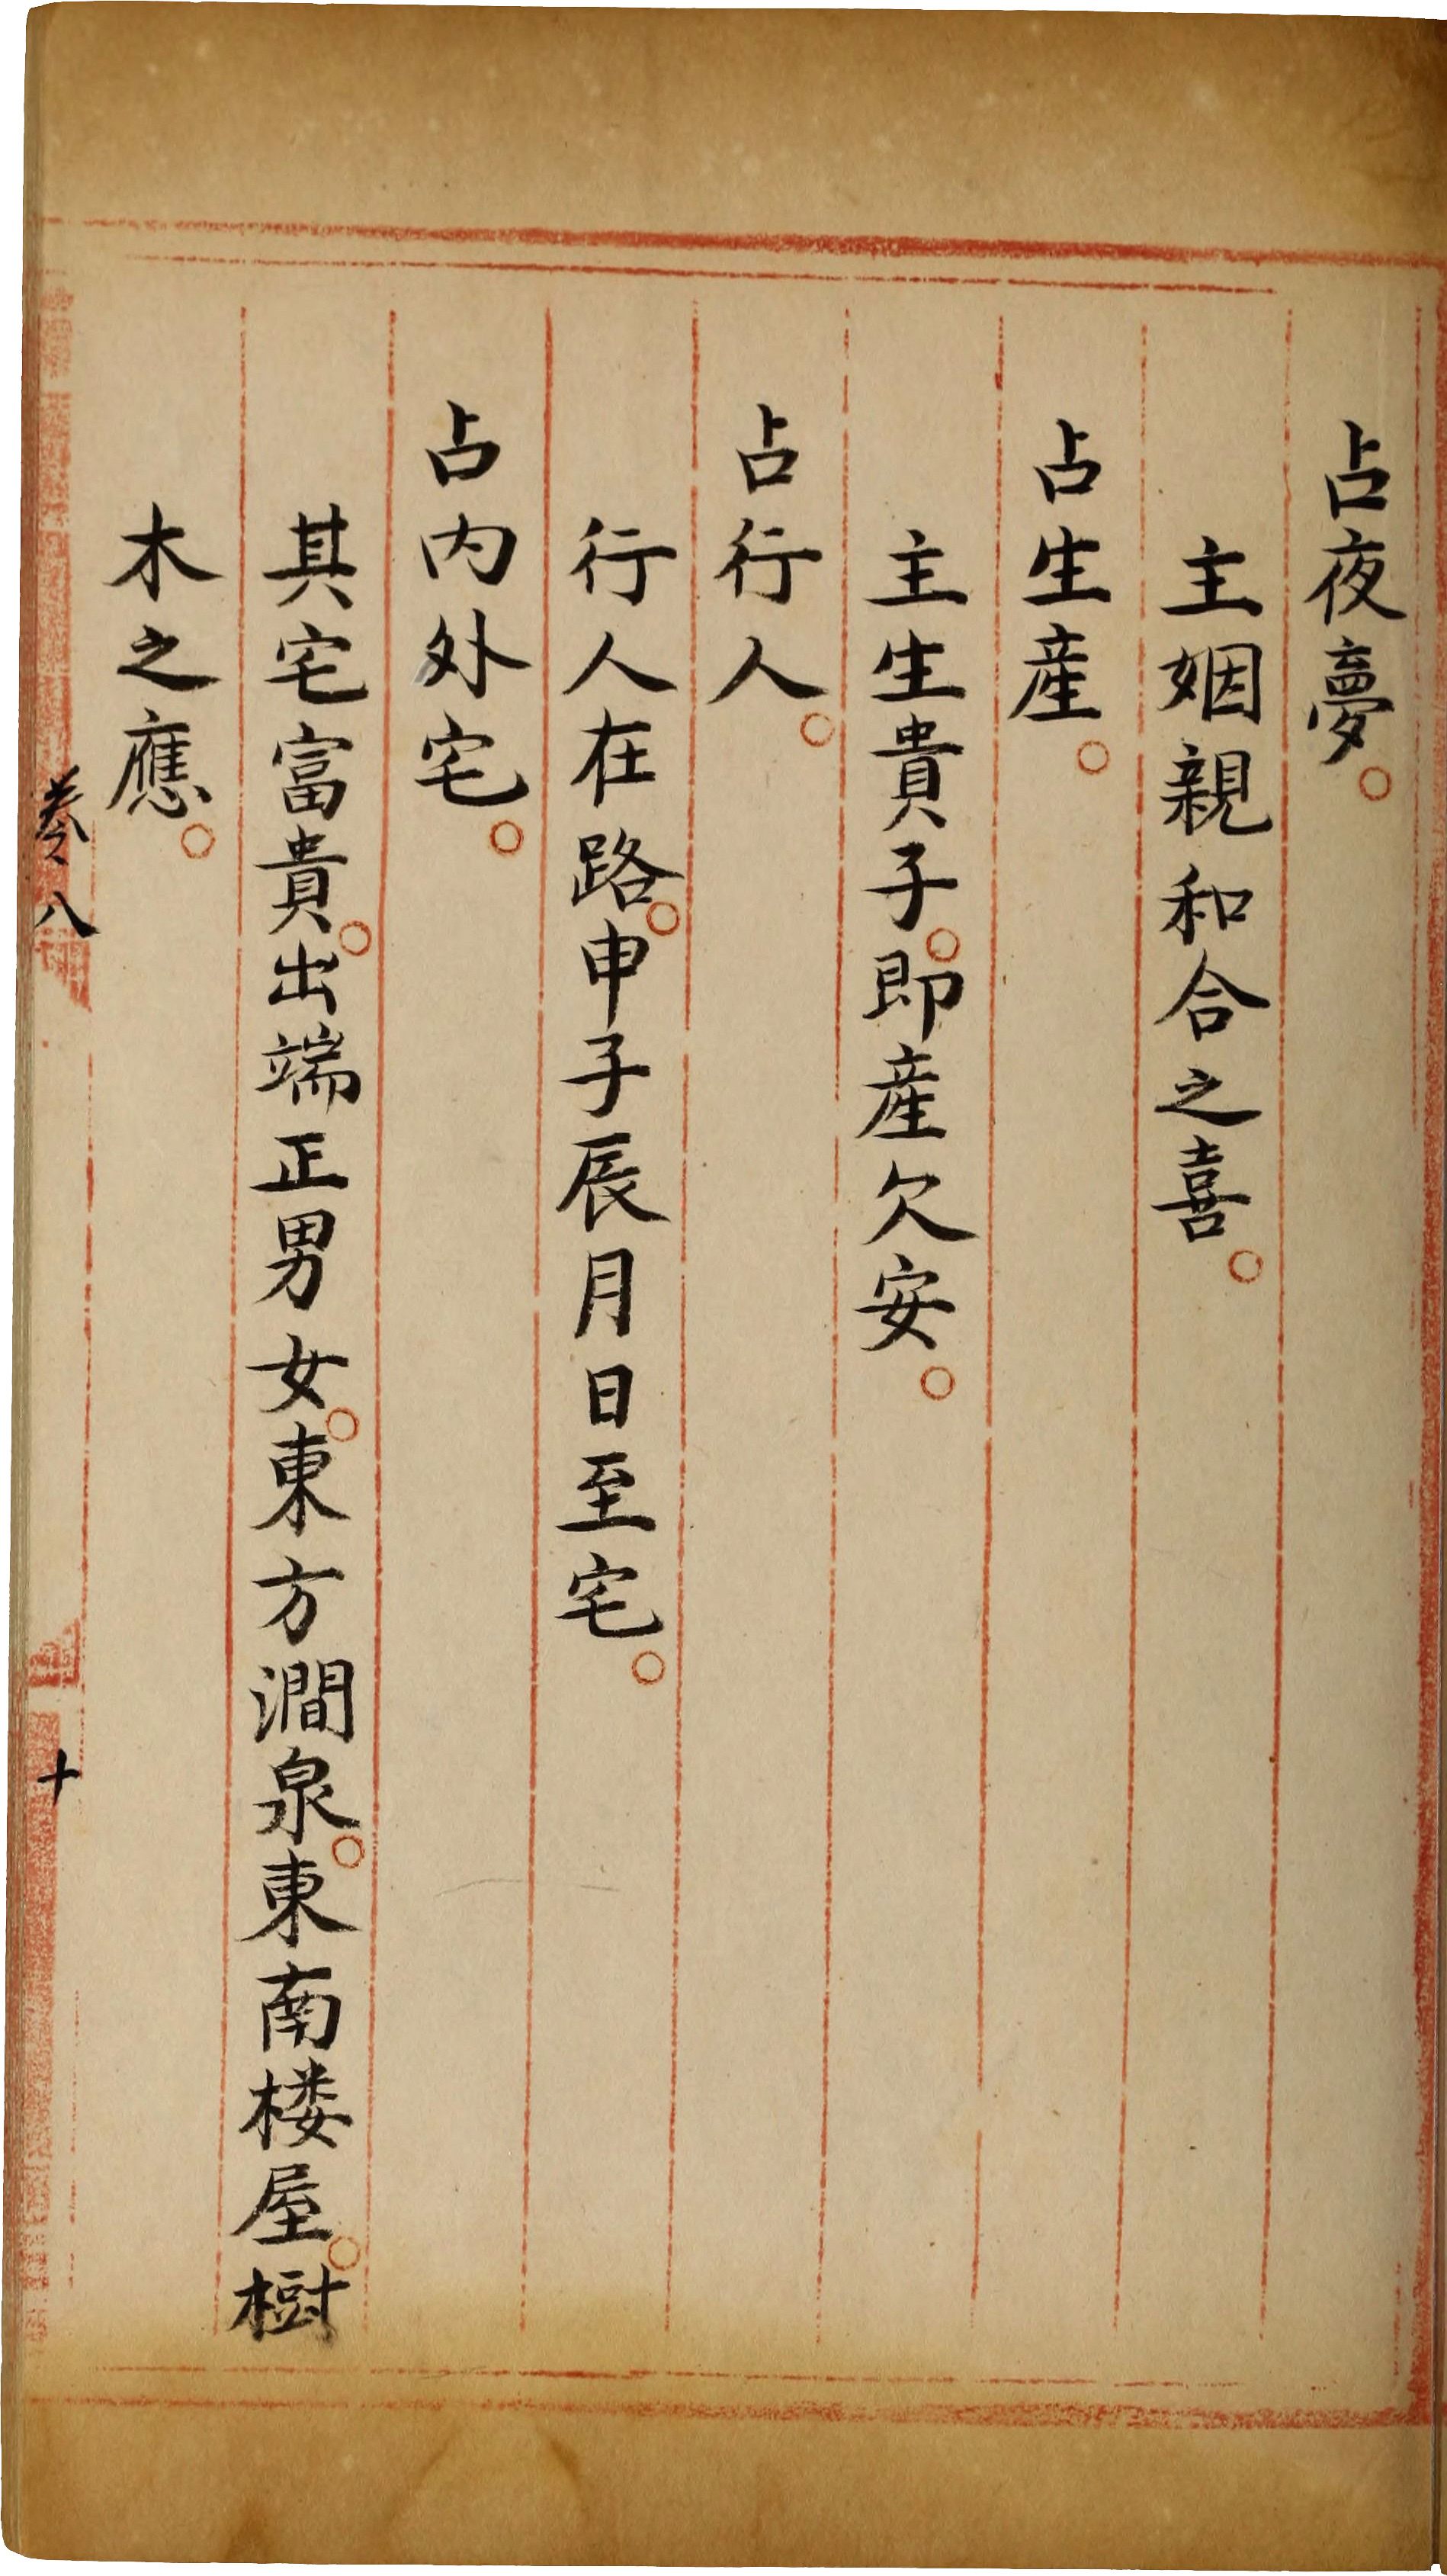 占夜夢。
主姻親和合之喜。
占生産。
主生貴子。即産欠安。
占行人。
行人在路。申子辰月日至宅。
占内外宅。
其宅富貴。出端正男女。東方澗泉。東南楼屋。樹
木之應。
卷八
十